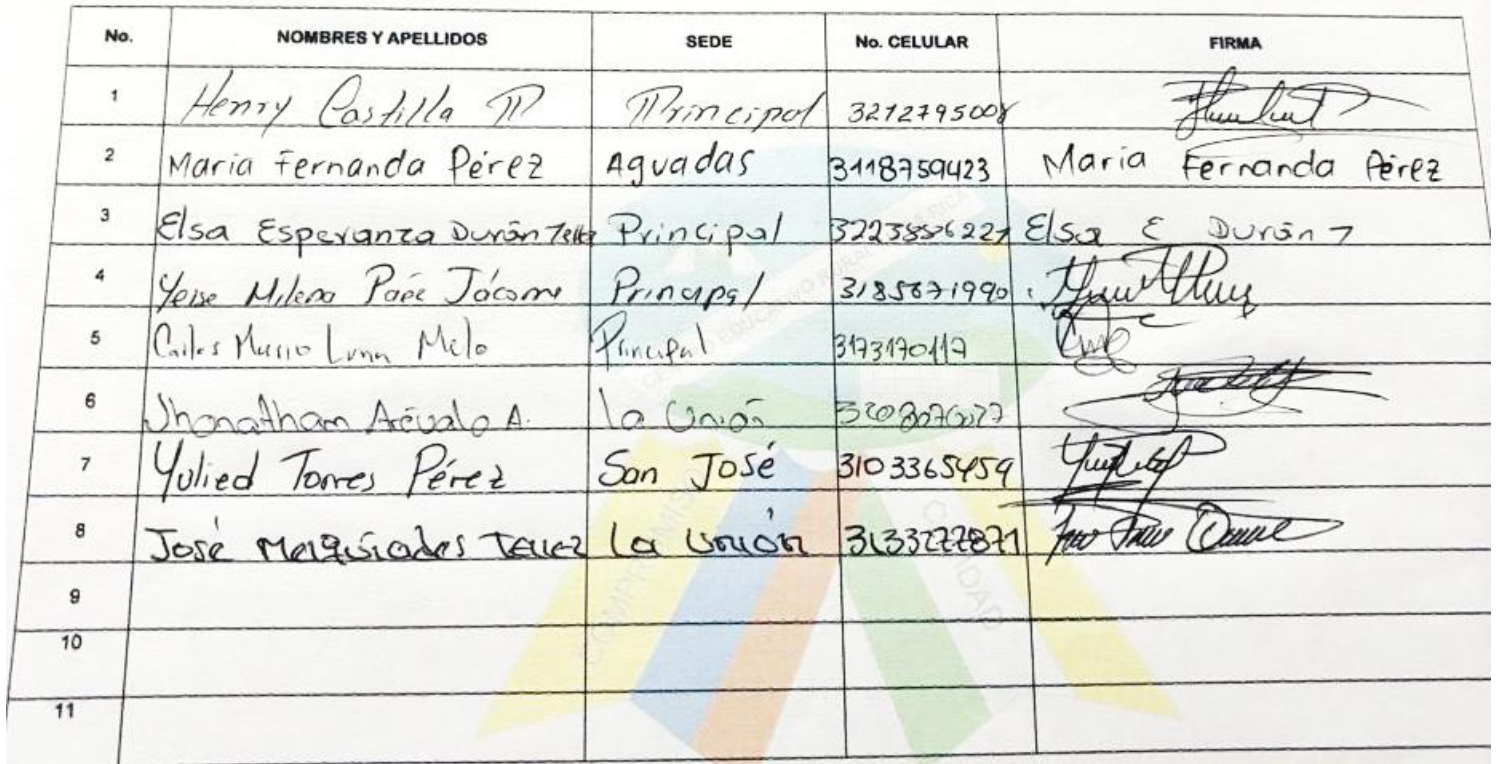 No. NOMBRES Y APELLIDOS SEDE No. CELULAR FIRMA
1 Henry Castilla P Principal 3212795008
2 Maria Fernanda Pérez Aguadas 3118759423 Maria Fernanda Pérez
3 Elsa Esperanza Durán Tellez Principal Elsa E Durán T
4 Yeise Milena Jácome Principal 3185671990
5 Carlos Luna Melo Principal 3173170117
6 Jhonatham Arévalo A. La Unión
7 Yulied Torres Pérez San José 3103365459
8 José Melquiades Tellez La Unión 3133277871
9
10
11
COMPROMISO
CALIDAD